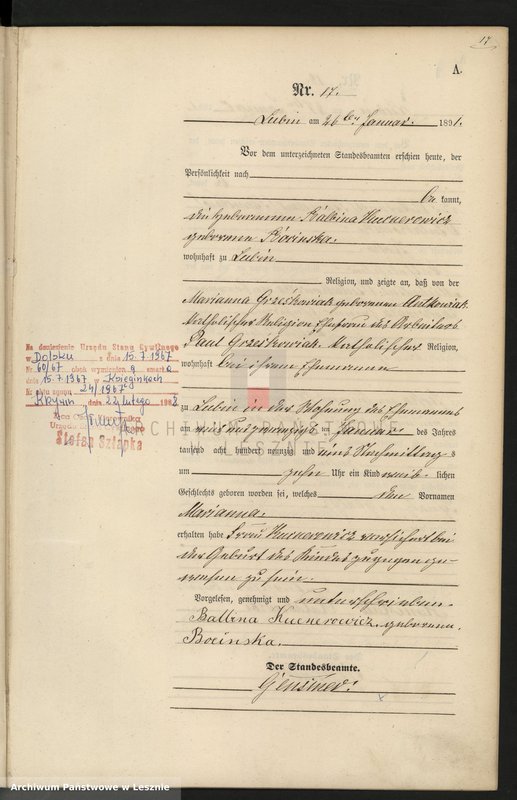 17
A.
Nr. 17.
Lubin am 26 ten Januar. 1891.
Vor dem unterzeichneten Standesbeamten erschien heute, der
Persönlichkeit nach
be kannt,
die Hebeamme Balbina Kucnerowicz
geborene Bocinska.
wohnhaft zu Lubin
Religion, und zeigte an, daß von der
Marianna Grześkowiak geborenen Antkowiak
katholischer Religion Ehefrau des Arbeiters
Paul Grześkowiak katholischer Religion,
wohnhaft bei ihrem Ehemanne
zu Lubin in der Wohnung des Ehemannes
am ein und zwanzigsten Januar des Jahres
tausend acht hundert neunzig und eins Nachmittags
um zehn Uhr ein Kind weib lichen
Geschlechts geboren worden sei, welches den Vornamen
Marianna.
erhalten habe Frau Kucnerowicz versichert bei
der Geburt des Kindes zugegen ge-
wesen zu sein.
Vorgelesen, genehmigt und unterschrieben.
Balbina Kucnerowicz geborena
Bocinska.
Der Standesbeamte.
Na doniesienie Urzędu Stanu Cywilnego
w Dolsku z dnia 15.7.1967
Nr. 60/67 obok wymienion a zmarł a
dnia 15.7.1967 w Księginkach
Nr aktu zgonu 24/1967
Krzywiń dnia 22 lutego
Stefan Szłapka
ARCHIWUM PAŃSTWOWE
W LESZNIE
Archiwum Państwowe w Lesznie